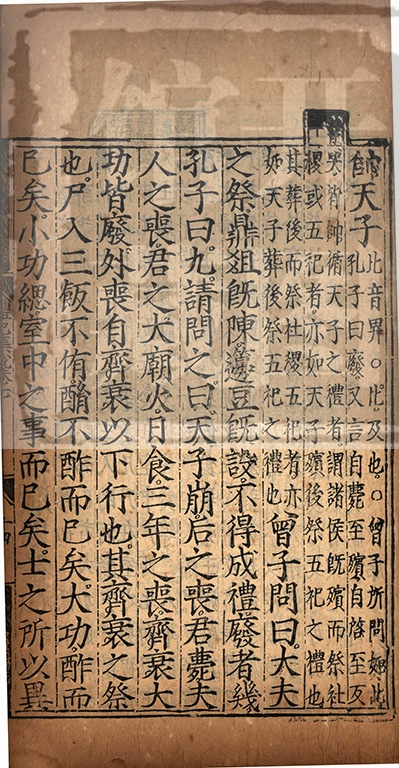 帥天子
比音畀○比及也○曾子所問如此
孔子曰廢又言自薨至殯自啓至反
哭皆帥循天子之禮者謂諸侯既殯而祭社
稷或五祀者亦如天子殯後祭五祀之禮也
其葬後而祭社稷五祀者亦
如天子葬後祭五祀之禮也
曾子問曰大夫
之祭鼎俎既陳籩豆既設不得成禮廢者幾
孔子曰九請問之曰天子崩后之喪君薨夫
人之喪君之大廟火日食三年之喪齊衰大
功皆廢外喪自齊衰以下行也其齊衰之祭
也尸入三飯不侑酳不酢而已矣大功酢而
已矣小功緦室中之事而已矣士之所以異